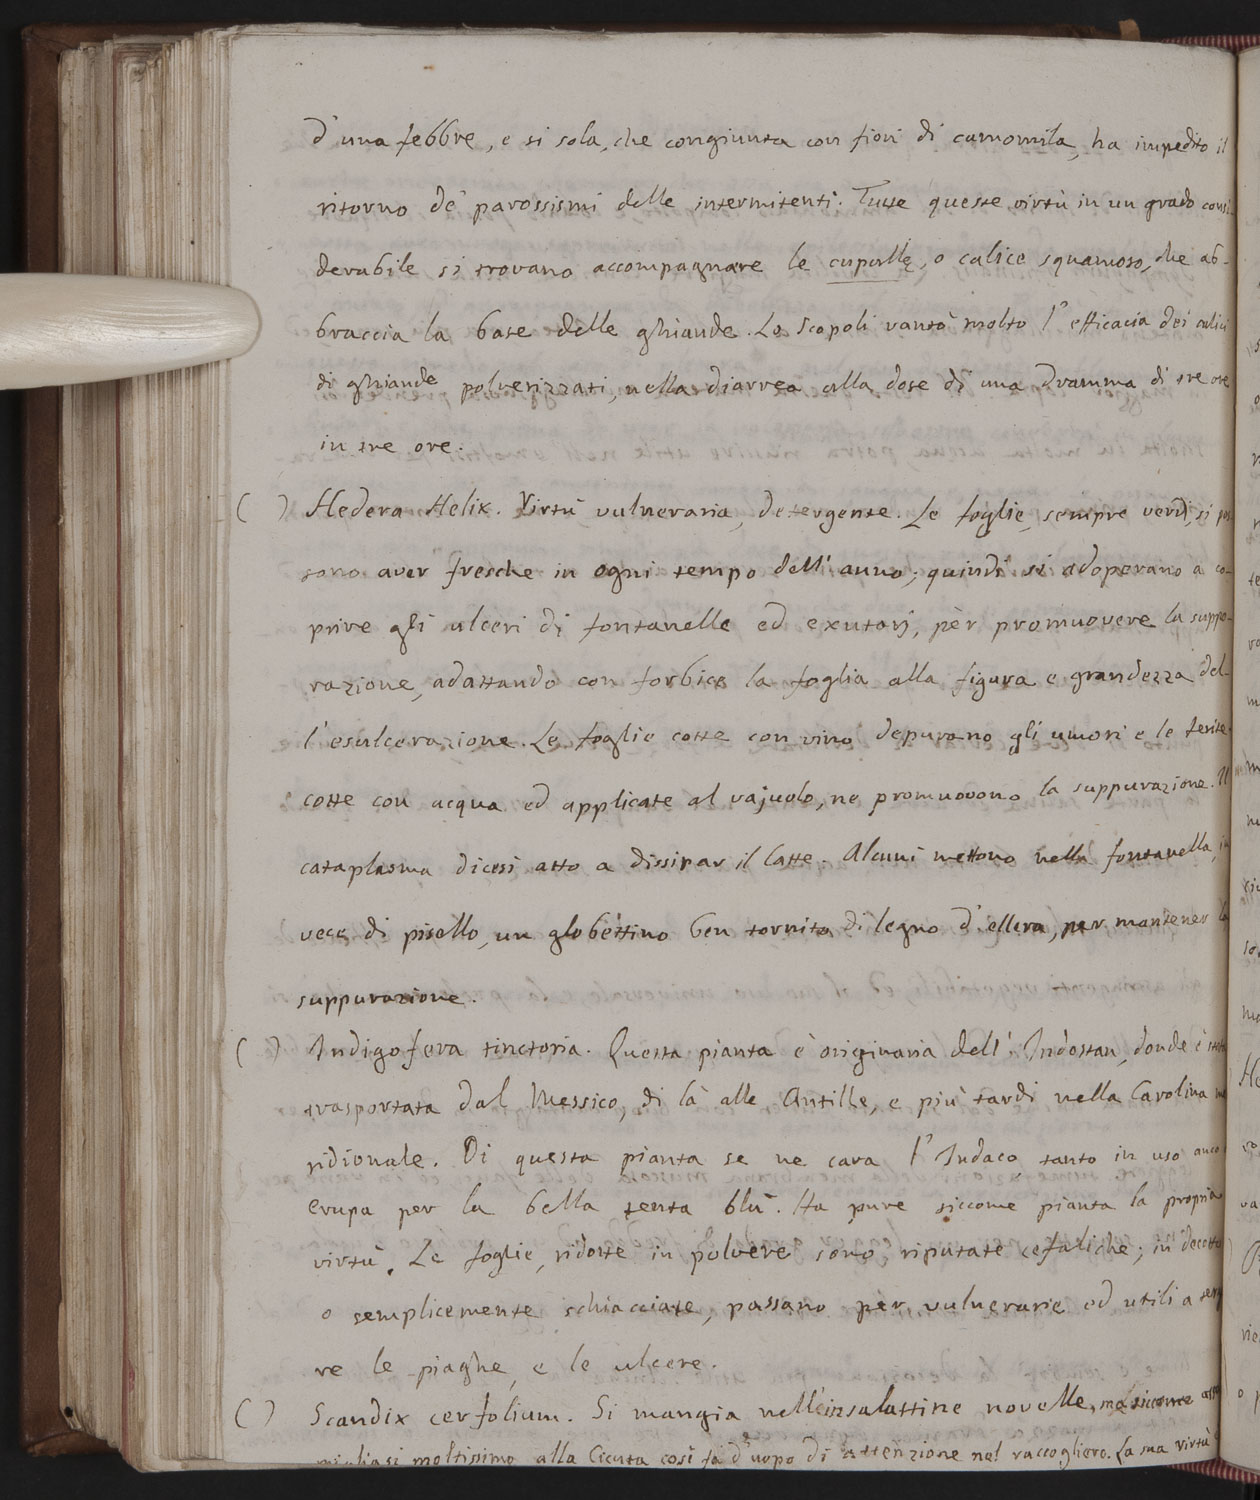 d'una febbre, e si sola, che congiunta con fiori di camomila, ha impedito il
ritorno de' parossismi delle intermitenti. Tutte queste virtù in un grado consi-
derabile si trovano accompagnare le cupulle, o calice squamoso, che ab-
braccia la base delle ghiande. Lo Scopoli vanta molto l'efficacia dei calici
di ghiande polverizzati, nella diarrea alla dose di una Dramma di tre ore
in tre ore.
( ) Hedera Helix. Virtù vulneraria, detergente. Le foglie, sempre verdi, si pos
sono aver fresche in ogni tempo dell'anno; quindi si adoperano a co-
prire gli ulceri di fontanelle ed exutorj, per promuovere la suppu-
razione, adattando con forbice la foglia alla figura e grandezza del-
l'esulcerazione. Le foglie cotte con vino depurano gli umori e le ferite
cotte con acqua ed applicate al vajuolo, ne promuovono la suppurazione. Il
cataplasma dicesi atto a dissipar il latte. Alcuni mettono nella fontanella, in
vece di pisello, un globettino ben tornito di legno d'ellera, per mantener la
suppurazione.
( ) Indigofera tinctoria. Questa pianta è originaria dell'Indostan, donde è stata
trasportata dal Messico, di là alle Antille, e più tardi nella Carolina me
ridionale. Di questa pianta se ne cava l'Indaco tanto in uso
erupa per la bella tenta blù. Ha pure siccome pianta la propria
virtù. Le foglie, ridotte in polvere sono riputate cefaliche; in decotto
o semplicemente schiacciate, passano per vulnerarie ed utili a
re le piaghe, e le ulcere.
( ) Scandix cerfolium. Si mangia nell'insalattine novelle, ma siccome
migliasi moltissimo alla Cicuta così fa d'uopo di attenzione nel raccogliero. La sua virtù